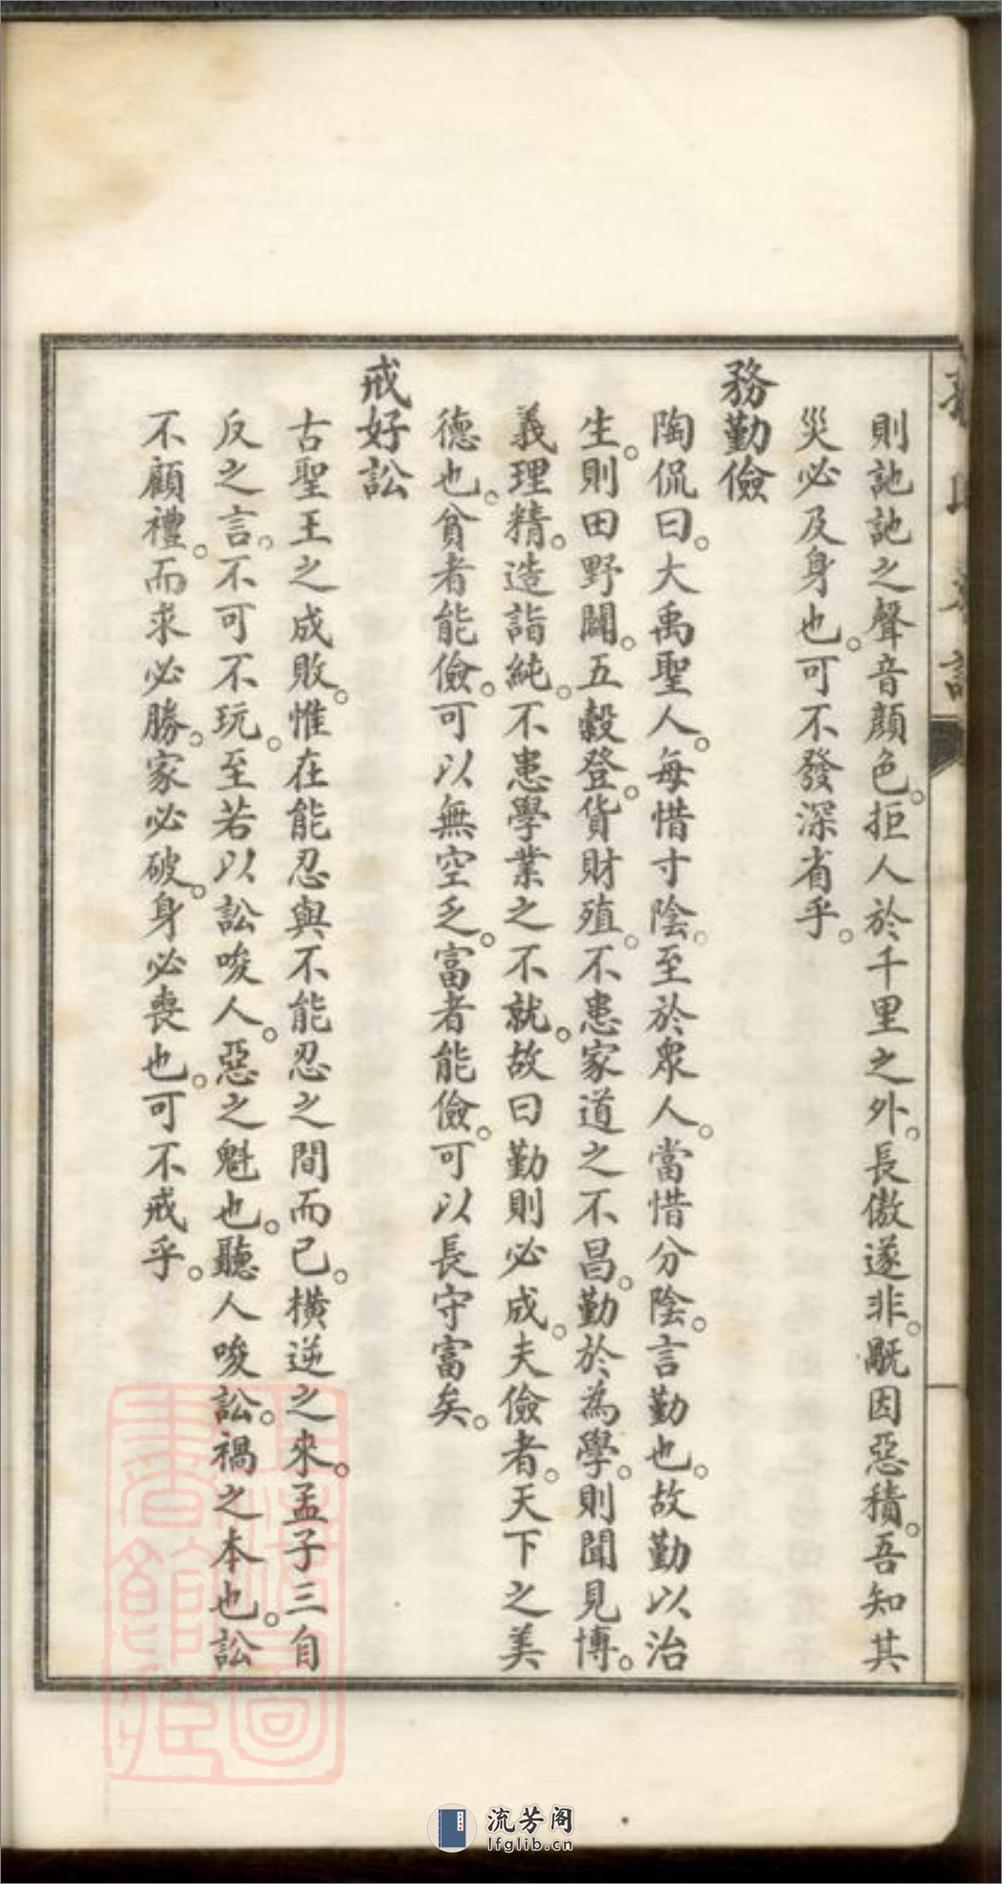 則訑訑之聲音顏色。拒人於千里之外。長傲遂非。厭因惡積。吾知其
災必及身也。可不發深省乎。
務勤儉
陶侃曰。大禹聖人。每惜寸陰。至於眾人。當惜分陰。言勤也。故勤以治
生。則田野闢。五穀登。貨財殖。不患家道之不昌。勤於為學。則聞見博。
義理精。造詣純。不患學業之不就。故曰勤則必成。夫儉者。天下之美
德也。貧者能儉。可以無空乏。富者能儉。可以長守富矣。
戒好訟
古聖王之成敗。惟在能忍與不能忍之間而已。橫逆之來。孟子三自
反之言。不可不玩。至若以訟唆人。惡之魁也。聽人唆訟。禍之本也。訟
不顧禮。而求必勝。家必破。身必喪也。可不戒乎。
流芳阁
lfglib.cn